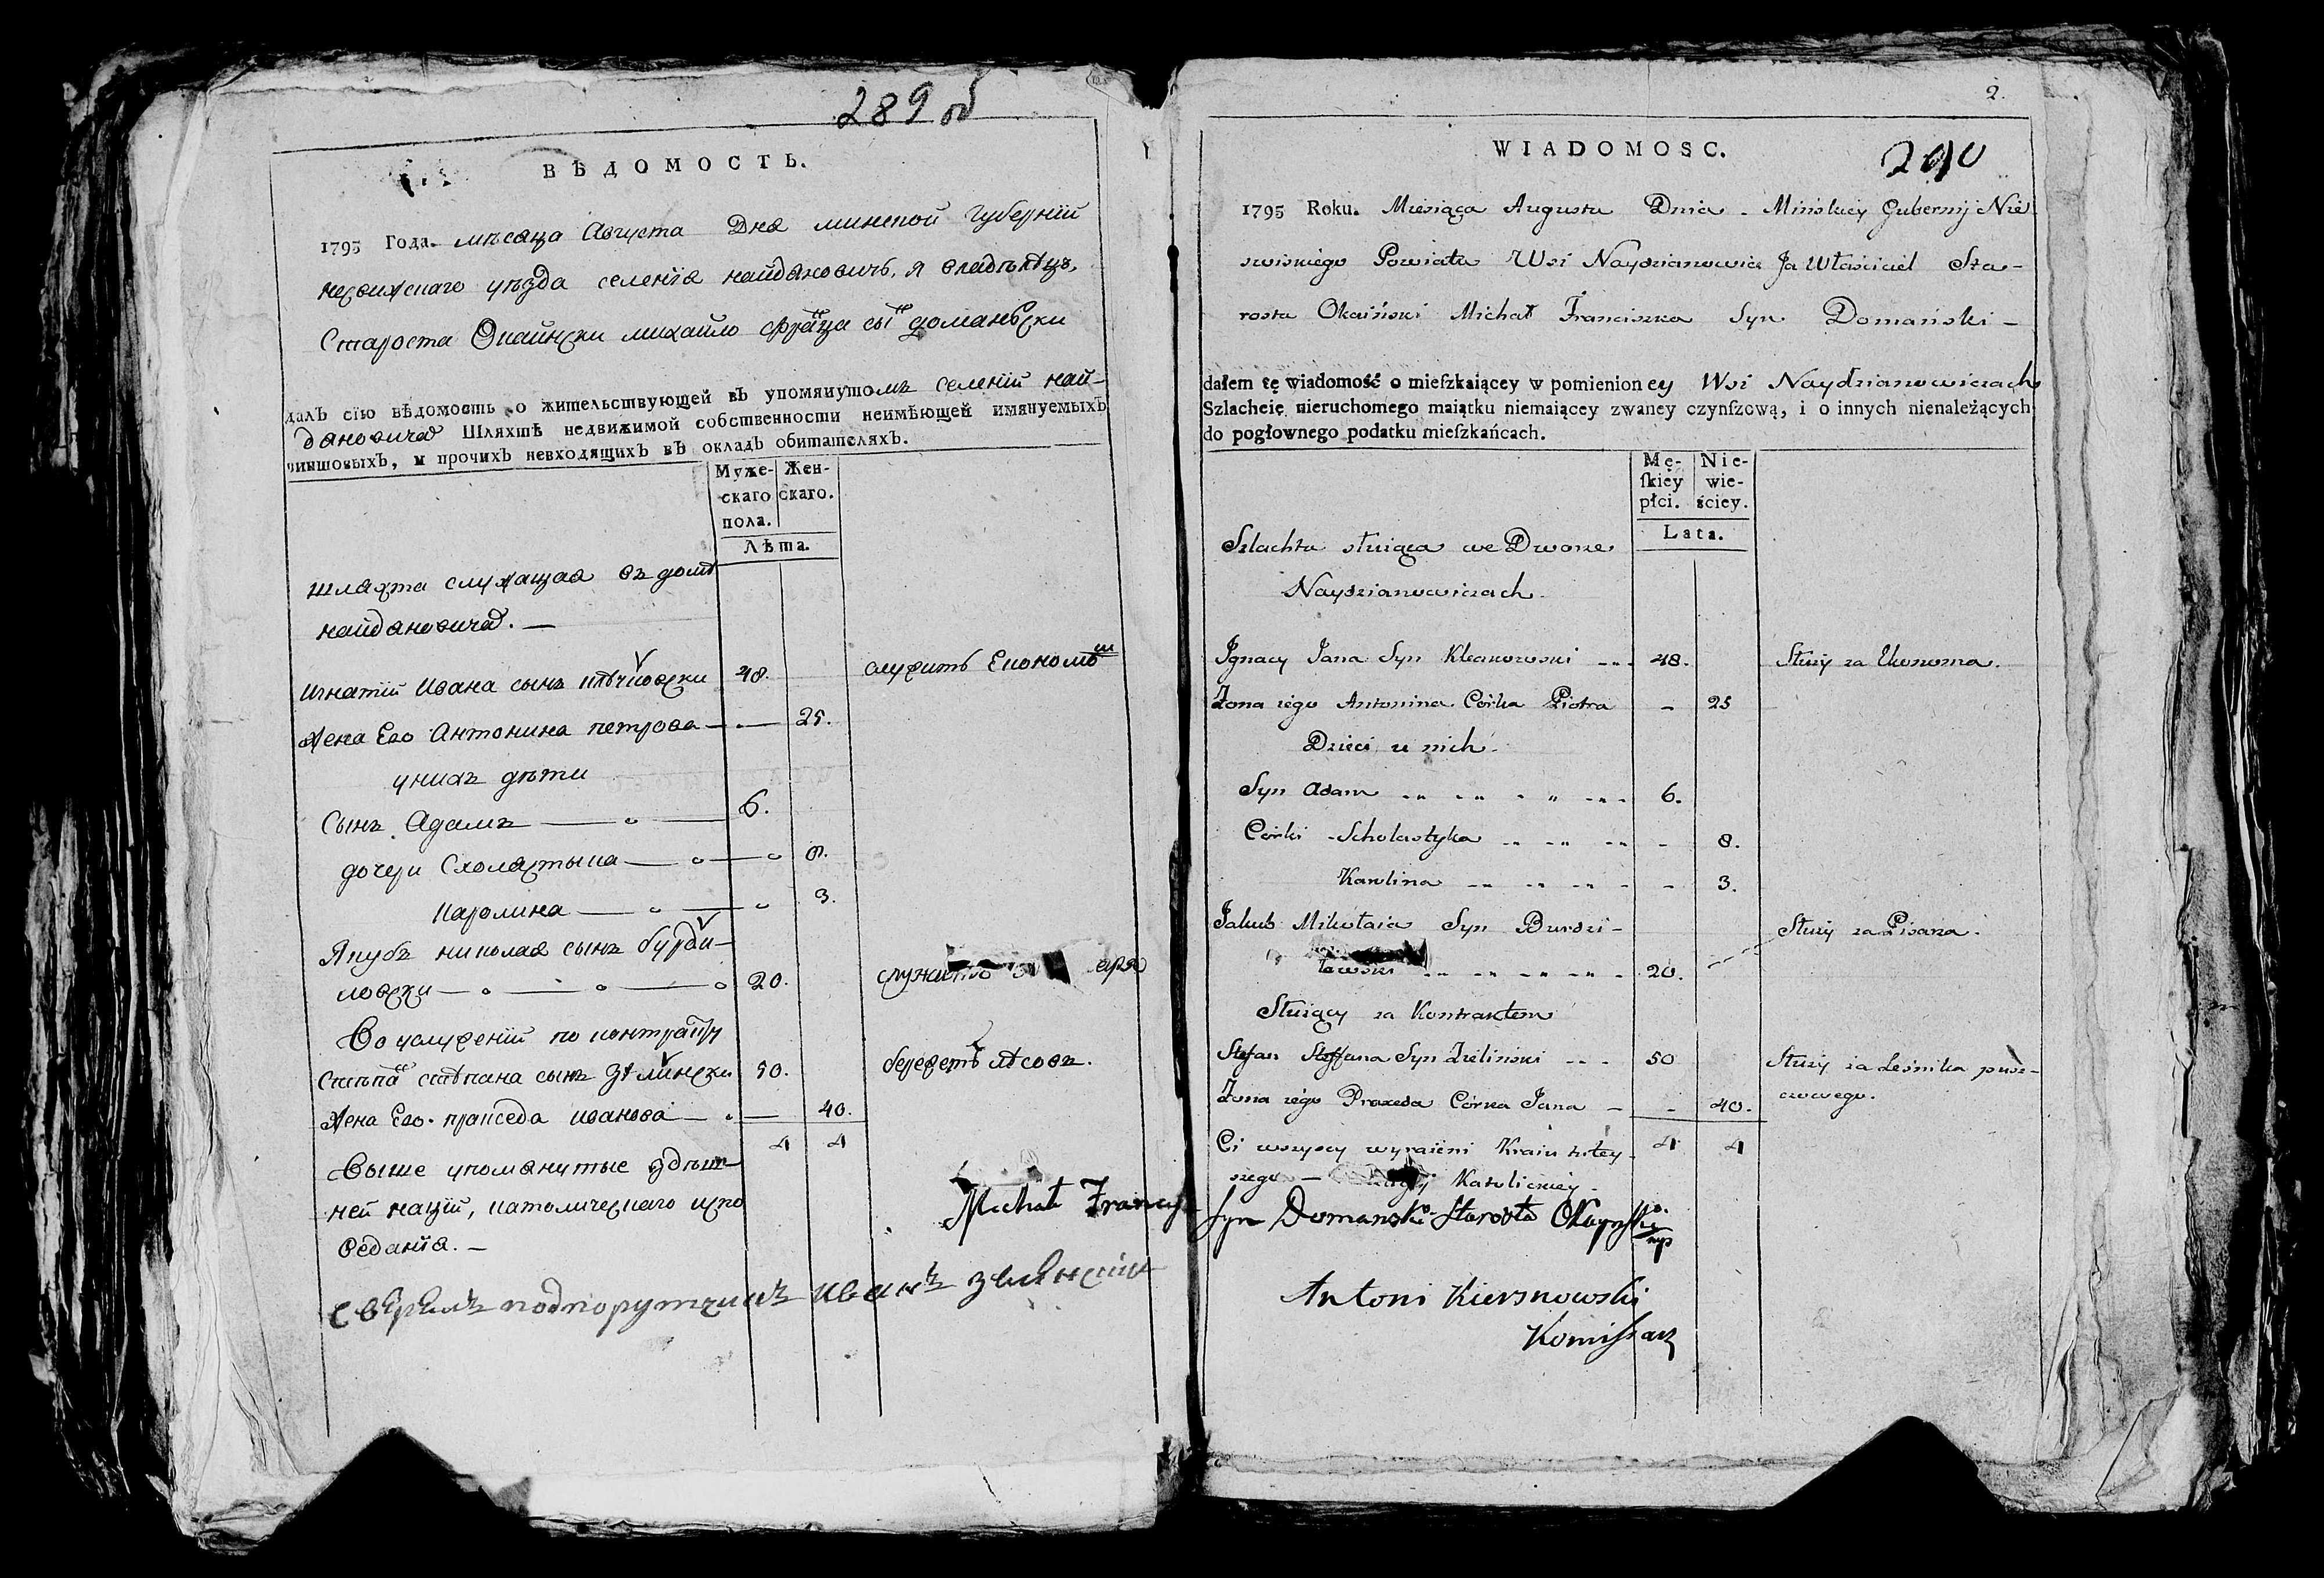 289 об
ВѢДОМОСТЬ.
1795 Года. мѣсяца Августа Дня минской Губерніи
несвижскаго уѣзда селенія найдяновичъ, я владѣлецъ,
Староста Окаински михайло франца сы домански
далъ сїю вѣдомость о жительствующей въ упомянутомъ селеніи най-
дяновичах Шляхтѣ недвижимой собственности неимѣющей имянуемыхъ
чиншовыхъ, и прочихъ невходящихъ въ окладъ обитателяхъ.
Муже- Жен-
скаго скаго.
пола.
Лѣта.
шляхта служащая въ домѣ
найдяновичах. —
игнатій Ивана сынъ клѣчковски 48. служитъ Економо м
Жена Его Антонина петрова — — 25.
у нихъ дѣти
Сынъ Адамъ — 6.
дочери Схолястыка — 8.
каролина — 3.
Якубъ николая сынъ бурдзи-
ловски — 20. служитъ аря
Во услуженіи по контракту
степа степана сынъ зелински 50. бережетъ лѣсовъ.
Жена Его. праксeда иванова — 40.
4 4
Выше упомянутые здѣш-
ней нацїи, католическаго испо
веданія. —
Michał Francis
свѣрялъ подпорутчикъ иванъ
2.
WIADOMOSC.
290
1795 Roku. Miesiąca Augusta Dnia - Mińskiey Gubernij Nie-
swiskiego Powiatu Wsi Naydzianowicz Ja Właściciel Sta-
rosta Okaiński Michał Franciszka Syn Domański —
dałem tę wiadomość o mieſzkaiącey w pomienioney Wsi Naydzianowiczach
Szlacheie nieruchomego maiątku niemaiącey zwaney czynſzową, i o innych nienależących
do pogłownego podatku mieſzkańcach.
Mę- Nie-
ſkiey wie-
płci. ściey.
Lata.
Szlachta służąca we Dworze
Naydzianowiczach.
Ignacy Jana Syn Kleczkowski --- 48. Służy za Ekonoma.
Żona iego Antonina Córka Piotra - 25
Dzieci u nich.
Syn Adam 6.
Corki Scholastyka - 8.
Karolina - 3.
Jakub Mikołaia Syn Burdzi- Służy za Pisarza.
łowski 20.
Służący za Kontraktem
Stefan Steffana Syn Zieliński --- 50 Służy za Leśnika pusz-
Żona iego Praxeda Córka Jana - - 40. czowego.
Ci wszyscy wyraźeni Kraiu tutey- 4 4
szego — Katolickiey.
Syn Domanski Starosta Okaynski mp
Antoni Kiersnowski
Komiſsarz